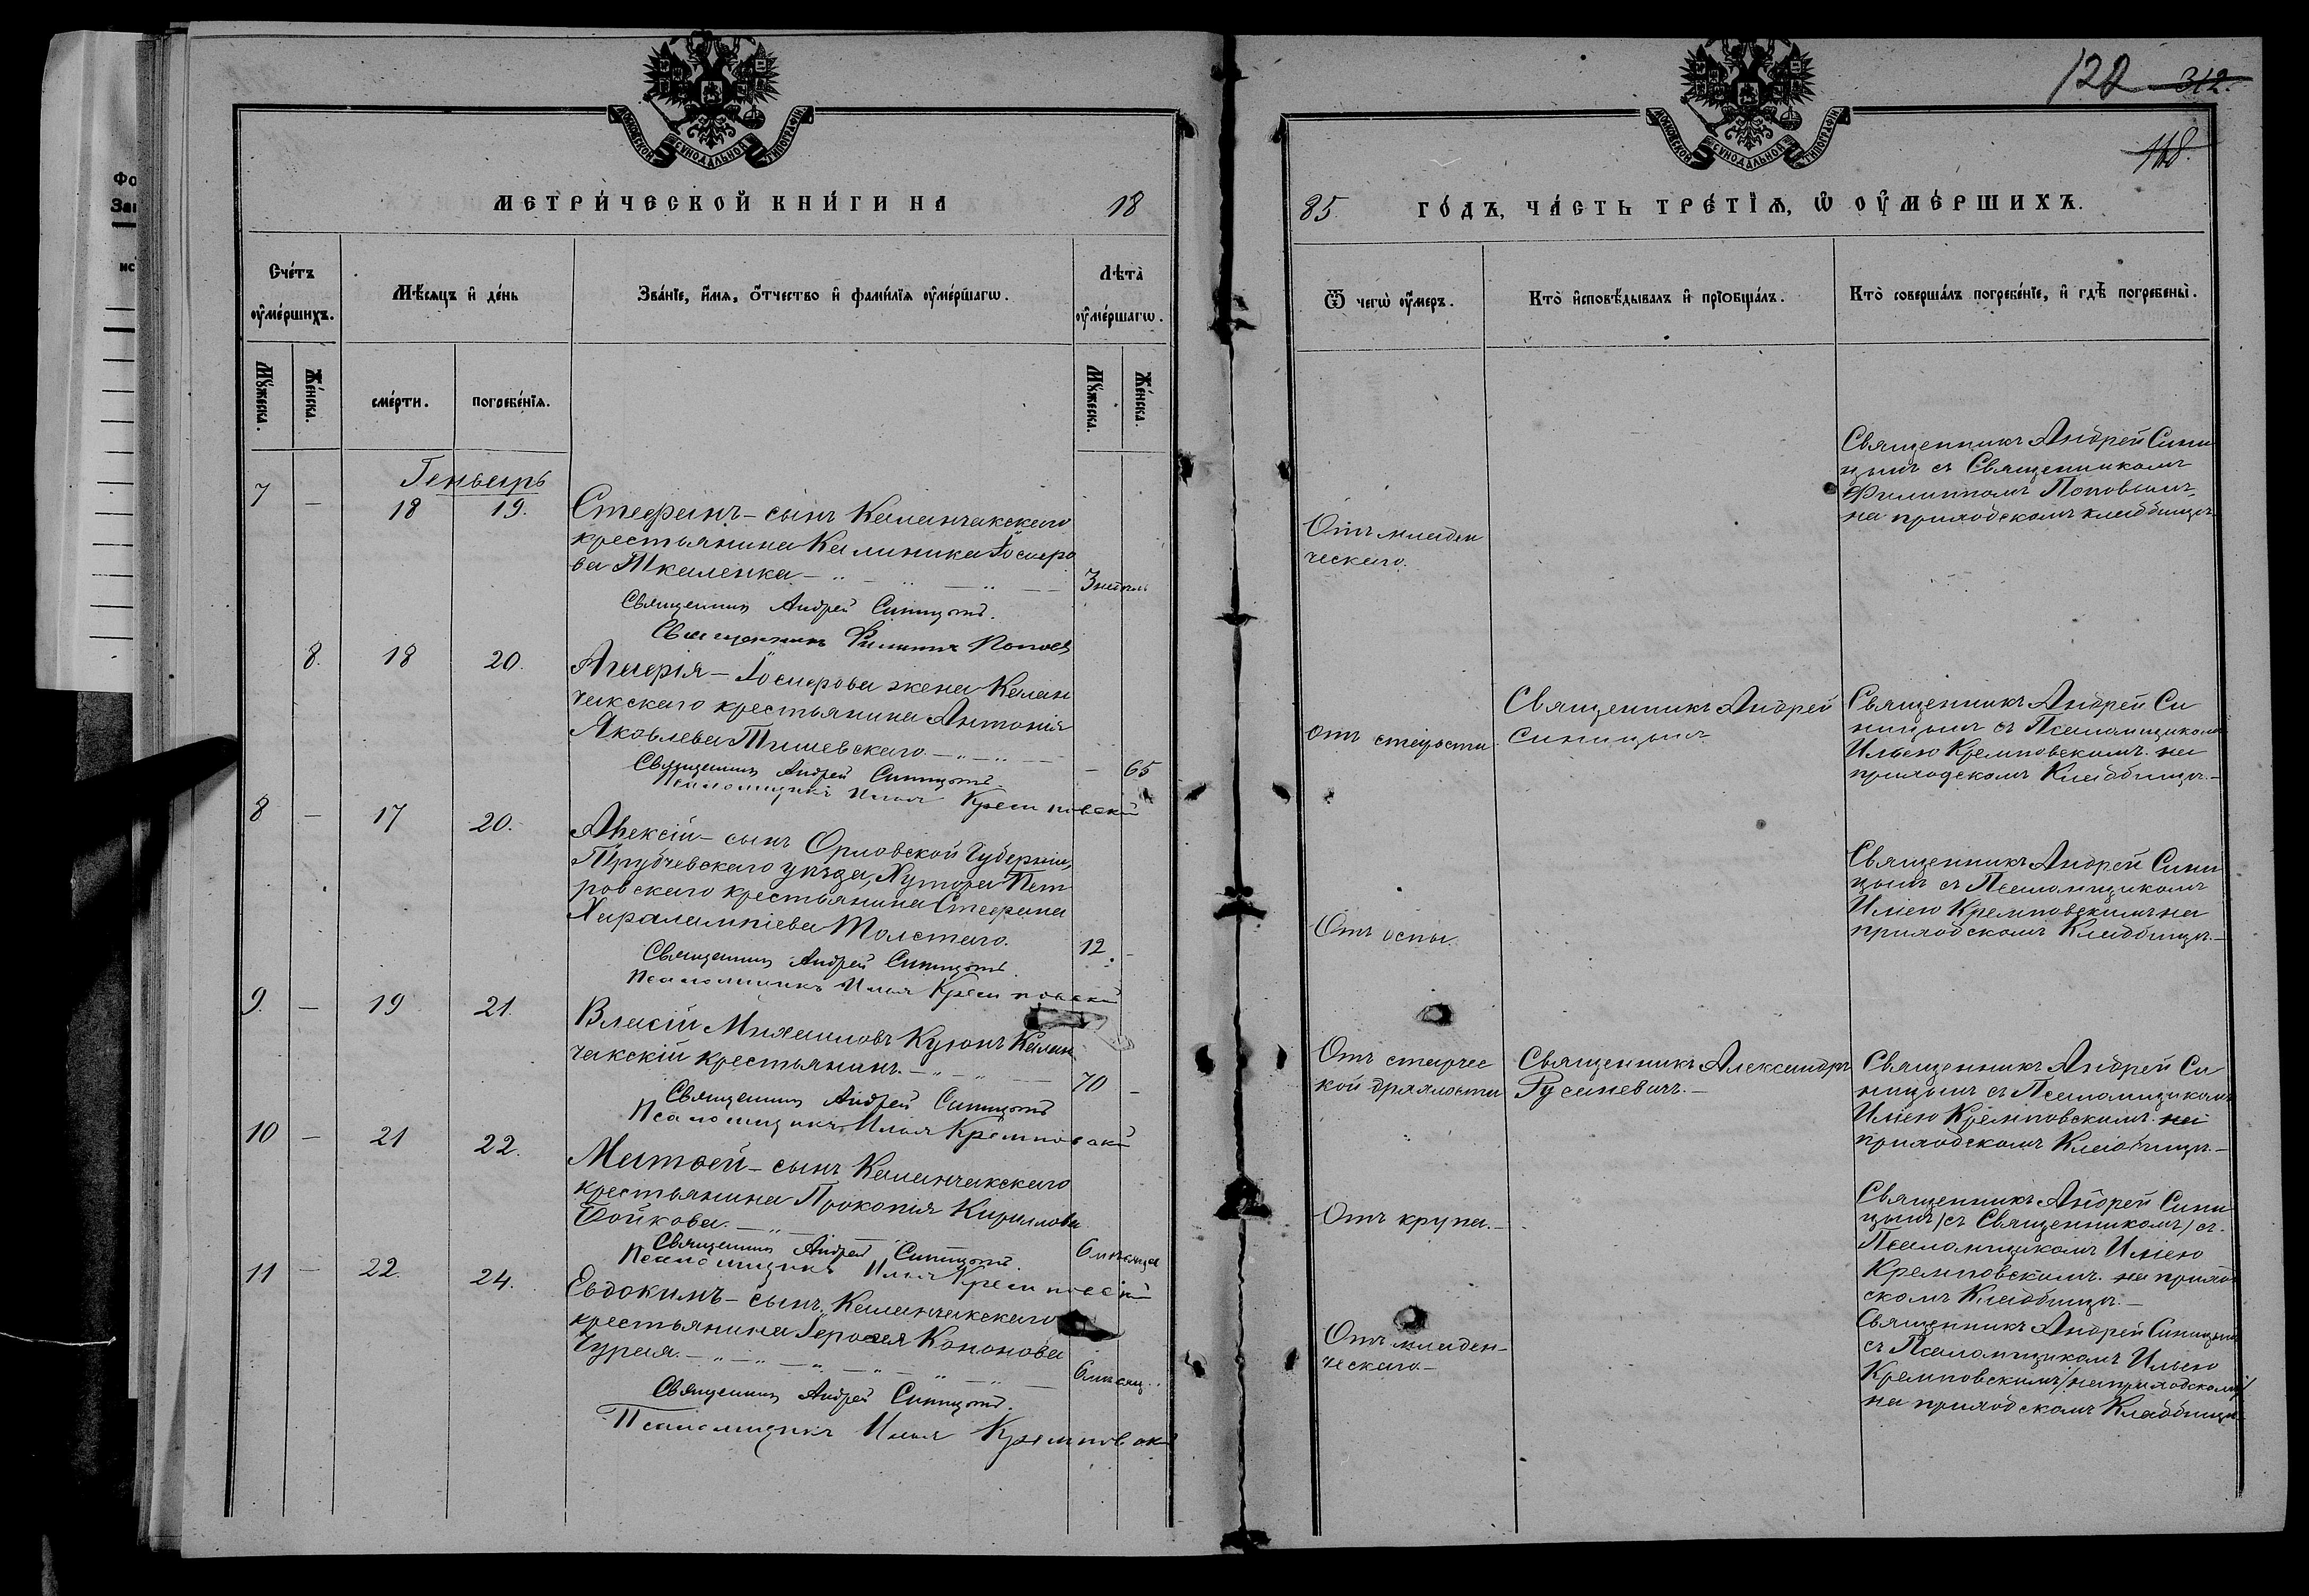 122 312.
118.
МОСКОВСКОЙ СѴНОДАЛЬНОЙ ТИПОГРАФІИ
МОСКОВСКОЙ СѴНОДАЛЬНОЙ ТИПОГРАФІИ
МЕТРИ́ЧЕСКОЙ КНИ́ГИ НА 18
85 ГО́ДЪ, ЧА́СТЬ ТРЕ́ТІѦ, Ѡ ОУ҆МЕ́РШИХЪ.
Сче́тъ
оу҆ме́ршихъ.
Мѣ́сяцъ и҆ де́нь
Зва́нїе, и҆́мѧ, ѻ҆́тчество и҆ фами́лїѧ оу҆ме́ршагѡ.
Лѣта̀
оу҆ме́ршагѡ.
Мꙋ́жеска.
Же́нска.
сме́рти.
погребе́нїѧ.
Мꙋ́жеска.
Же́нска.
Ѿ чегѡ̀ оу҆́меръ.
Кто̀ и҆сповѣ́дывалъ и҆ прїобща́лъ.
Кто̀ соверша́лъ погребе́нїе, и҆ гдѣ̀ погребены̀.
Генварь
7 — 18 19.
Стефанъ – сынъ Каланчакскаго
крестьянина Калиника Іосифо
ва Ткаленка
3 недѣль
Священникъ Андрей Синицынъ.
Священникъ Филиппъ Поповъ
Отъ младен
ческаго.
Священникъ Андрей Сини
цынъ съ Священникомъ
Филиппомъ Поповымъ,
на приходскомъ кладбищѣ
8. 18 20.
Агафія – Іосифова жена Калан
чакскаго крестьянина Антонія
Яковлева Тишевскаго
— 65
Священникъ Андрей Синицынъ
Псаломщикъ Илья Кремповскій
отъ старости
Священникъ Андрей
Синицынъ
Священникъ Андрей Си
ницынъ съ Псаломщикомъ
Ильею Кремповскимъ. на
приходскомъ Кладбищѣ.—
8 — 17 20.
Алексій – сынъ Орловской Губерніи,
Трубчевскаго уѣзда, Хутора Пет
ровскаго крестьянина Стефана
Харалампіева Толстаго.
12. —
Священникъ Андрей Синицынъ.
Псаломщикъ Илья Кремповскій
Отъ оспы
Священникъ Андрей Сини
цынъ съ Псаломщикомъ
Ильею Кремповскимъ на
приходскомъ Кладбищѣ.—
9. — 19 21.
Власій Михаиловъ Куюнъ Калан
чакскій крестьянинъ.
70 —
Священникъ Андрей Синицынъ
Псаломщикъ Илья Кремповскій
Отъ старчес
кой дряхлости
Священникъ Александръ
Русиневичъ.—
Священникъ Андрей Си
ницынъ съ Псаломщикомъ
Ильею Кремповскимъ. на
приходскомъ Кладбищѣ.—
10 — 21 22.
Матѳей – сынъ Каланчакскаго
крестьянина Прокопія Кириллова
Бойкова.
6 мѣсяцев
Священникъ Андрей Синицынъ.
Псаломщикъ Илья Кремповскій
Отъ крупа.—
Священникъ Андрей Сини
цынъ /съ Священникомъ/ съ
Псаломщикомъ Ильею
Кремповскимъ. на приход
скомъ Кладбищѣ.—
11 — 22. 24.
Евдокимъ – сынъ Каланчакскаго
крестьянина Герасія Кононова
Чурая.
6 мѣсяц.
Священникъ Андрей Синицынъ.
Псаломщикъ Илья Кремповскій
Отъ младен-
ческаго.—
Священникъ Андрей Синицынъ
съ Псаломщикомъ Ильею
Кремповскимъ /на приходскомъ/
на приходскомъ Кладбищѣ